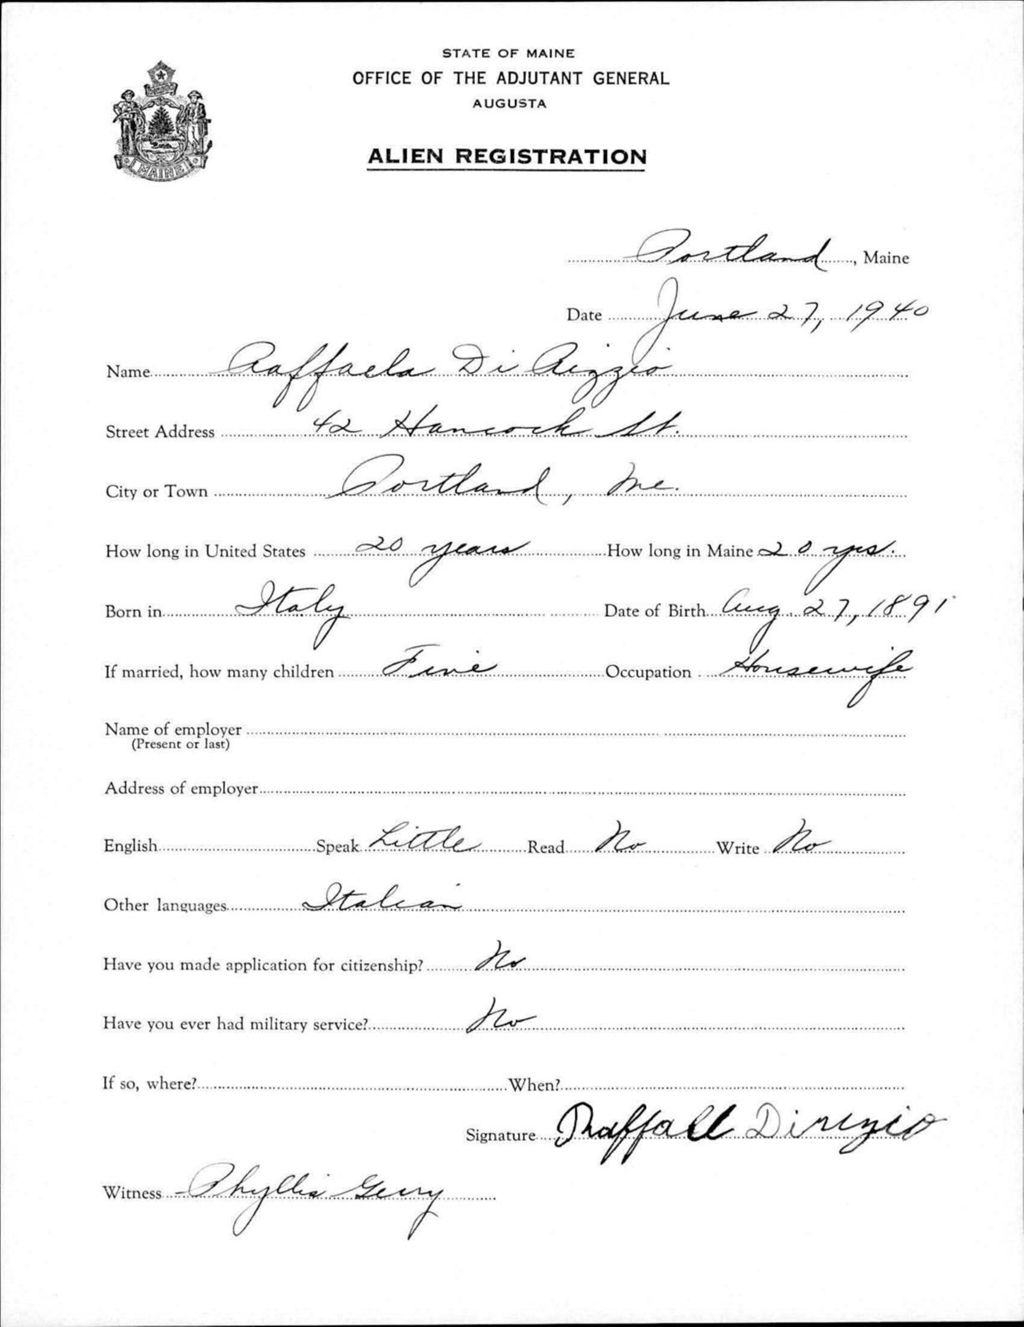 STATE OF MAINE
OFFICE OF THE ADJUTANT GENERAL
AUGUSTA
ALIEN REGISTRATION
MAINE
Portland, Maine
Date June 27, 1940
Name Raffaela Di Rizzio
Street Address 42 Hancock St.
City or Town Portland, Me.
How long in United States 20 years How long in Maine 20 yrs.
Born in Italy Date of Birth Aug. 27, 1891
If married, how many children Five Occupation Housewife
Name of employer
(Present or last)
Address of employer
English Speak Little Read No Write No
Other languages Italian
Have you made application for citizenship? No
Have you ever had military service? No
If so, where? When?
Signature
Witness Phyllis Gerry